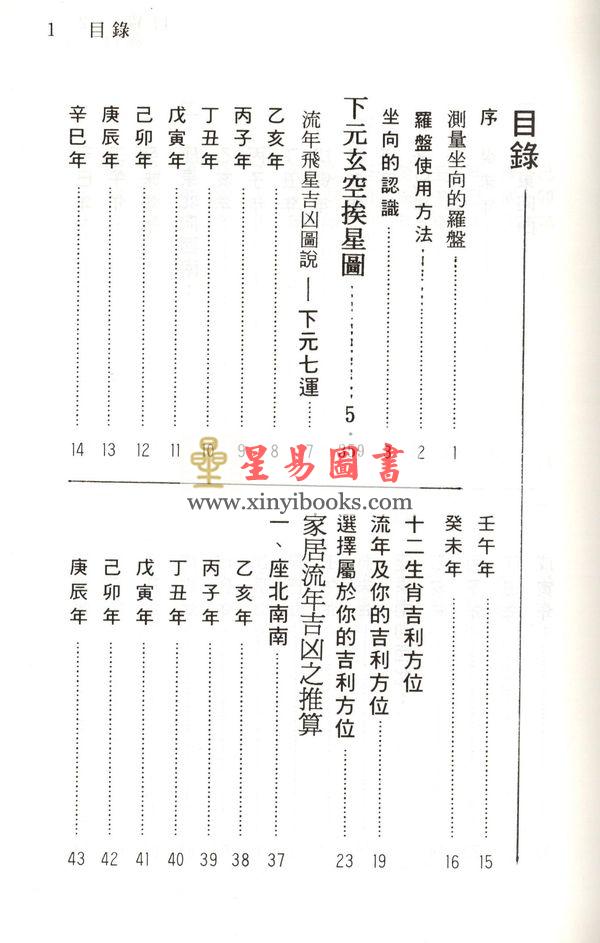 1 目錄
目錄
序
測量坐向的羅盤 1
羅盤使用方法 2
坐向的認識 3
下元玄空挨星圖 5
流年飛星吉凶圖說——下元七運 7
乙亥年 8
丙子年 9
丁丑年 10
戊寅年 11
己卯年 12
庚辰年 13
辛巳年 14
星易圖書
www.xinyibooks.com
壬午年 15
癸未年 16
十二生肖吉利方位
流年及你的吉利方位 19
選擇屬於你的吉利方位 23
家居流年吉凶之推算
一、座北南南 37
乙亥年 38
丙子年 39
丁丑年 40
戊寅年 41
己卯年 42
庚辰年 43